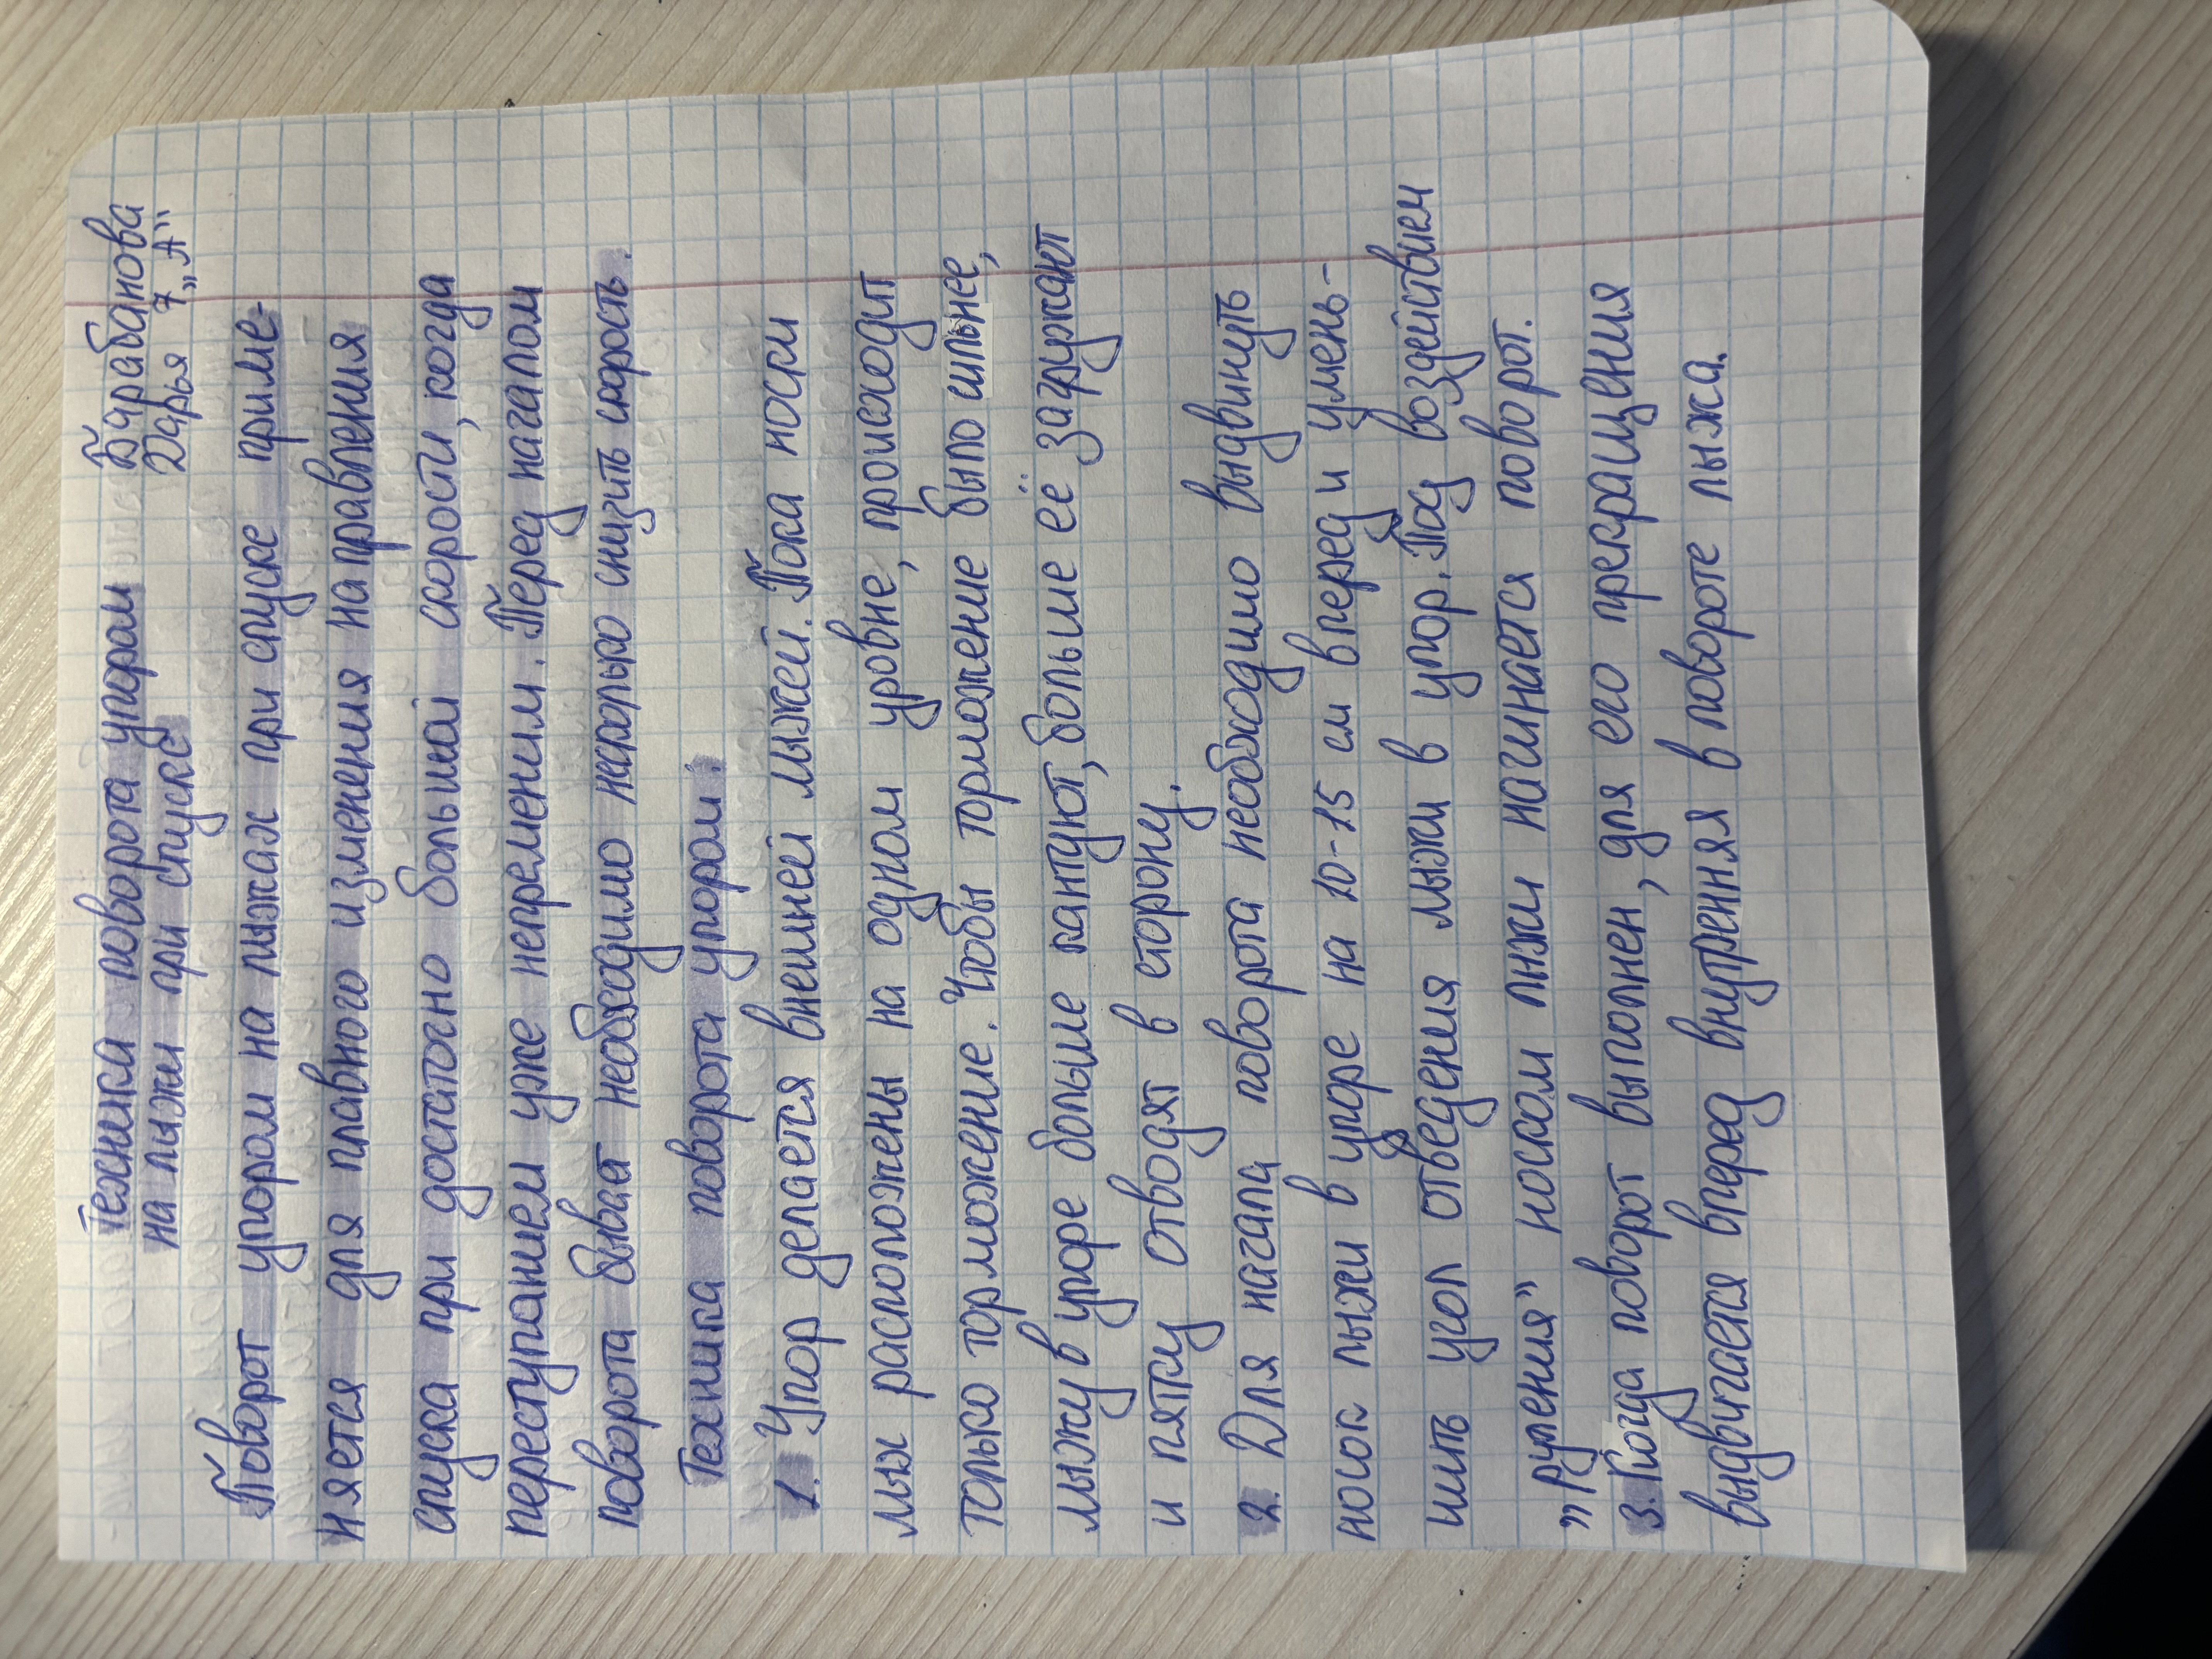 Техника поворота упором Барабанова
на лыжи при спуске Дарья 7 „А"
Поворот упором на лыжах при спуске приме-
няется для плавного изменения направления
спуска при достаточно большой скорости, когда
переступанием уже непременим. Перед началом
поворота бывает необходимо несколько снизить скорость.
Техника поворота упором.
1. Упор делается внешней лыжей. Пока носки
лыж расположены на одном уровне, происходит
только торможение. Чтобы торможение было сильнее,
лыжу в упоре больше кантуют, больше её загружают
и пятку отводят в сторону.
2. Для начала поворота необходимо выдвинуть
носок лыжи в упоре на 10-15 см вперед и умень-
шить угол отведения лыжи в упор. Под воздействием
„руления" носком лыжи начинается поворот.
3. Когда поворот выполнен, для его прекращения
выдвигается вперед внутренняя в повороте лыжа.